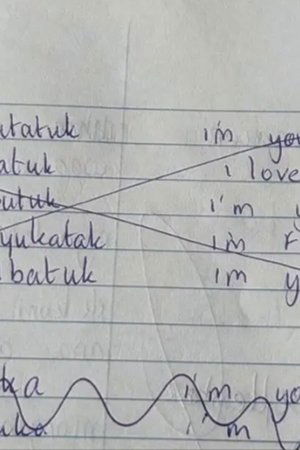 utatuk i'm you
atuk i love
utuk i'm y
yukatak i'm r
batuk i'm y
a i'm yo
i'm